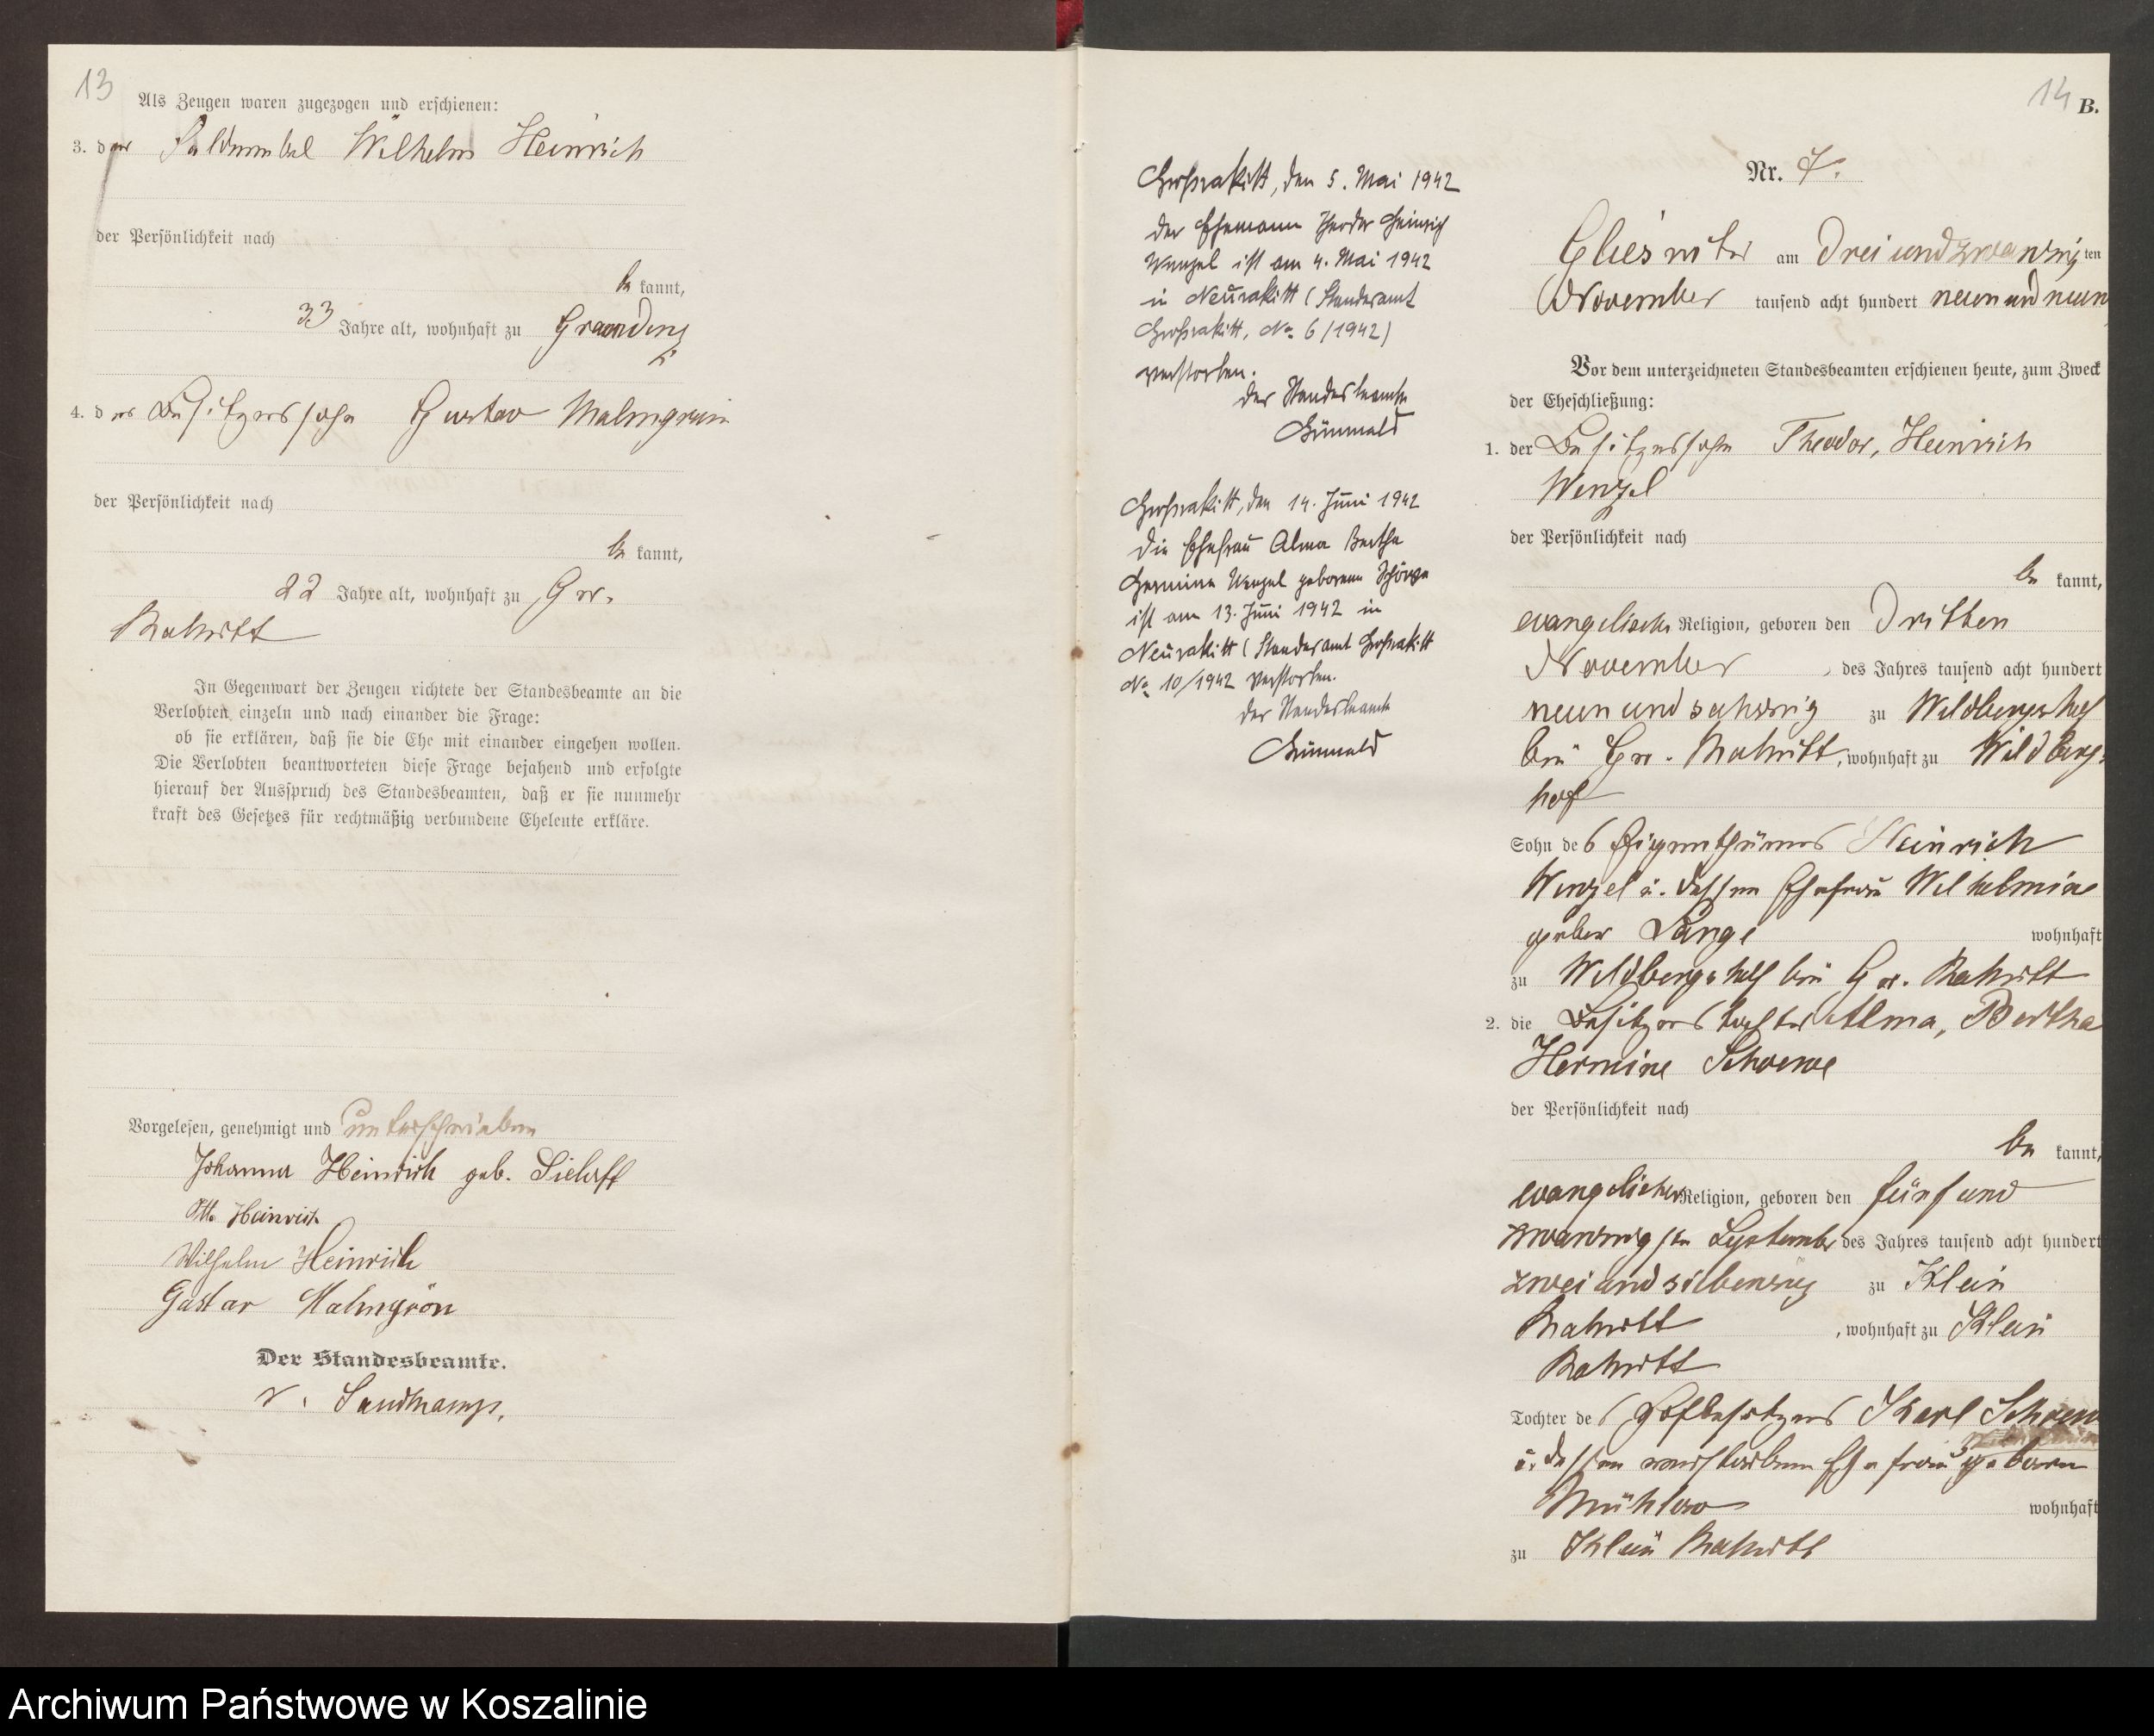 13
Als Zeugen waren zugezogen und erschienen:
3. der Feldwebel Wilhelm Heinrich
der Persönlichkeit nach
be kannt,
33 Jahre alt, wohnhaft zu Graudenz
4. der Besitzerssohn Gustav Malmgrün
der Persönlichkeit nach
be kannt,
22 Jahre alt, wohnhaft zu Gr.
Rakitt
In Gegenwart der Zeugen richtete der Standesbeamte an die
Verlobten einzeln und nach einander die Frage:
ob sie erklären, daß sie die Ehe mit einander eingehen wollen.
Die Verlobten beantworteten diese Frage bejahend und erfolgte
hierauf der Ausspruch des Standesbeamten, daß er sie nunmehr
kraft des Gesetzes für rechtmäßig verbundene Eheleute erkläre.
Vorgelesen, genehmigt und unterschrieben
Johanna Heinrich geb. Sielaff
Otto Heinrich
Wilhelm Heinrich
Gustav Malmgrön
Der Standesbeamte.
v. Sandkamp.
Großrakitt, den 5. Mai 1942
Der Ehemann Theodor Heinrich
Wenzel ist am 4. Mai 1942
in Neurakitt (Standesamt
Großrakitt, No 6/1942)
verstorben.
Der Standesbeamte
Grünwald
Großrakitt, den 14. Juni 1942
Die Ehefrau Alma Bertha
Hermine Wenzel geborene Schöwe
ist am 13. Juni 1942 in
Neurakitt (Standesamt Großrakitt
No 10/1942 verstorben.
Der Standesbeamte
Grünwald
14 B.
Nr. 7.
Gliesnitz am Drei und zwanzig ten
November tausend acht hundert neun und neun
Vor dem unterzeichneten Standesbeamten erschienen heute, zum Zweck
der Eheschließung:
1. der Besitzerssohn Theodor, Heinrich
Wenzel
der Persönlichkeit nach
be kannt,
evangelischer Religion, geboren den Dritten
November des Jahres tausend acht hundert
neun und sechzig zu Wildbergshof
bei Gr. Rakitt, wohnhaft zu Wildbergs
hof
Sohn des Eigenthümers Heinrich
Wenzel u. dessen Ehefrau Wilhelmine
gebor Lange wohnhaft
zu Wildbergshof bei Gr. Rakitt
2. die Besitzerstochter Alma, Bertha
Hermine Schoewe
der Persönlichkeit nach
be kannt,
evangelischer Religion, geboren den fünf und
zwanzigsten September des Jahres tausend acht hundert
zwei und siebenzig zu Klein
Rakitt, wohnhaft zu Klein
Rakitt
Tochter des Hofbesitzers Karl Schoew
u. dessen verstorbenen Ehefrau geboren
Mühlow wohnhaft
zu Klein Rakitt
Archiwum Państwowe w Koszalinie